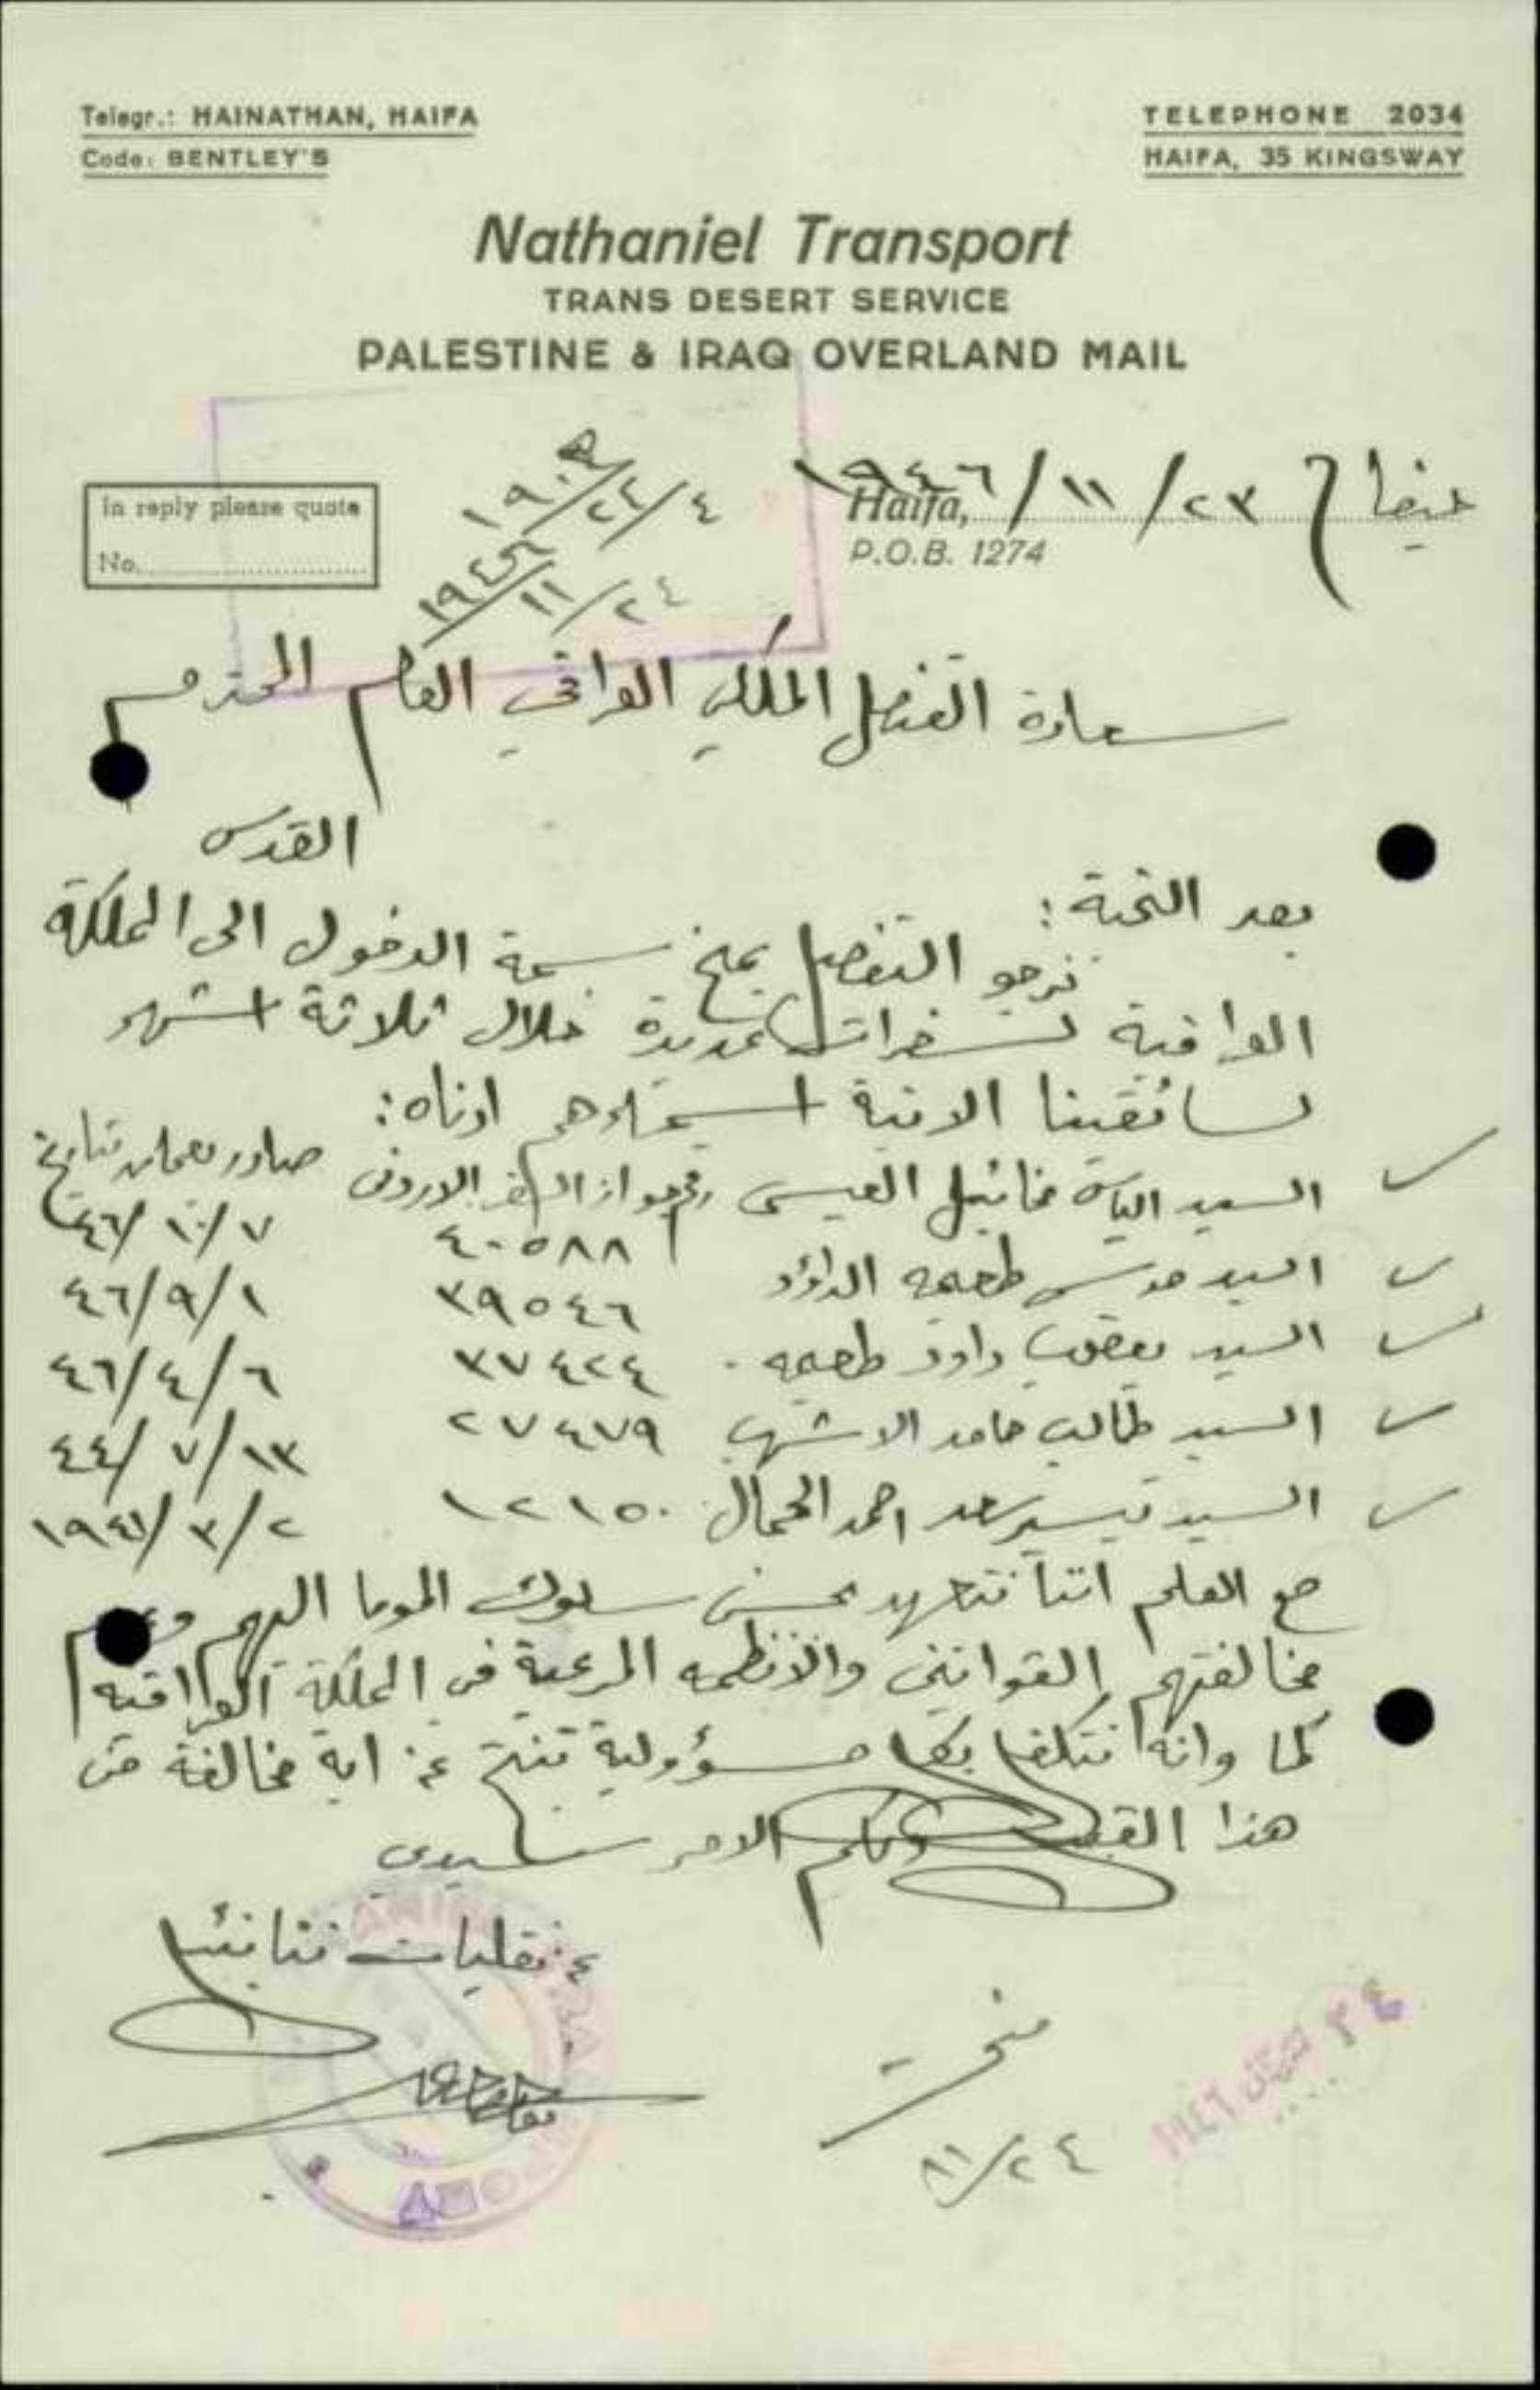 Telegr.: HAINATHAN, HAIFA
Code: BENTLEY'S
TELEPHONE 2034
HAIFA, 35 KINGSWAY
Nathaniel Transport
TRANS DESERT SERVICE
PALESTINE & IRAQ OVERLAND MAIL
In reply please quote
No.
٤/٢٢/١٩٠٥
٢٤/١١/١٩٤٦
حيفا في ٢٣/١١/١٩٤٦
Haifa,
P.O.B. 1274
سعادة القنصل الملكي العراقي العام المحترم
القدس
بعد التحية:
نرجو التفضل بمنح سمة الدخول الى المملكة
العراقية لسفرات عديدة خلال ثلاثة اشهر
لسائقينا الاتية اسماؤهم ادناه:
السيد الياس مخائيل العيسى رقم جواز السفر الاردني ٤٠٥٨٨ صادر بعمان بتاريخ ٧/١٠/٤٦
السيد موسى طعمه الداؤد ٣٩٥٤٦ ١/٩/٤٦
السيد يعقوب داود طعمه ٣٧٤٢٤ ٦/٤/٤٦
السيد طالب حامد الاشهب ٢٧٤٧٩ ١٣/٧/٤٤
السيد تيسير سعد احمد الحمال ١٢١٥٠ ٢/٣/١٩٤٦
مع العلم اننا نتعهد بحسن سلوك الموما اليهم وعدم
مخالفتهم القوانين والانظمه المرعية في المملكة العراقيه
كما وانه نتكفل بكل مسؤولية تنتج عن اية مخالفة من
هذا القبيل ولكم الامر سيدي
ع. نقليات نتانئيل
منحت
٢٤/١١
٢٤ ١٩٤٦